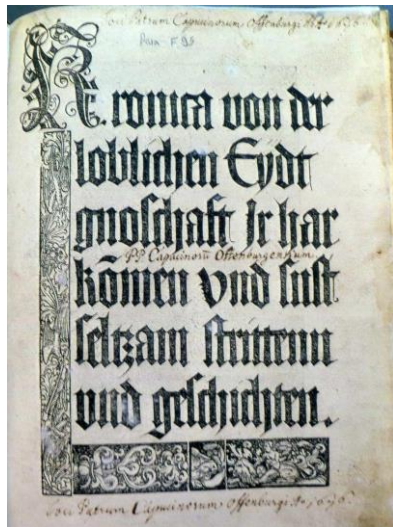 Loci Patrum Capucinorum Offenburgi A° 1656
F 93
Kronica von der
loblichen Eydt
gnoschaft Jr har
kom̄en vnd sust
seltzam strittenn
und geschichten.
PP Capucinorū Offenburgensium
Loci Patrum Capucinorum Offenburgi A°